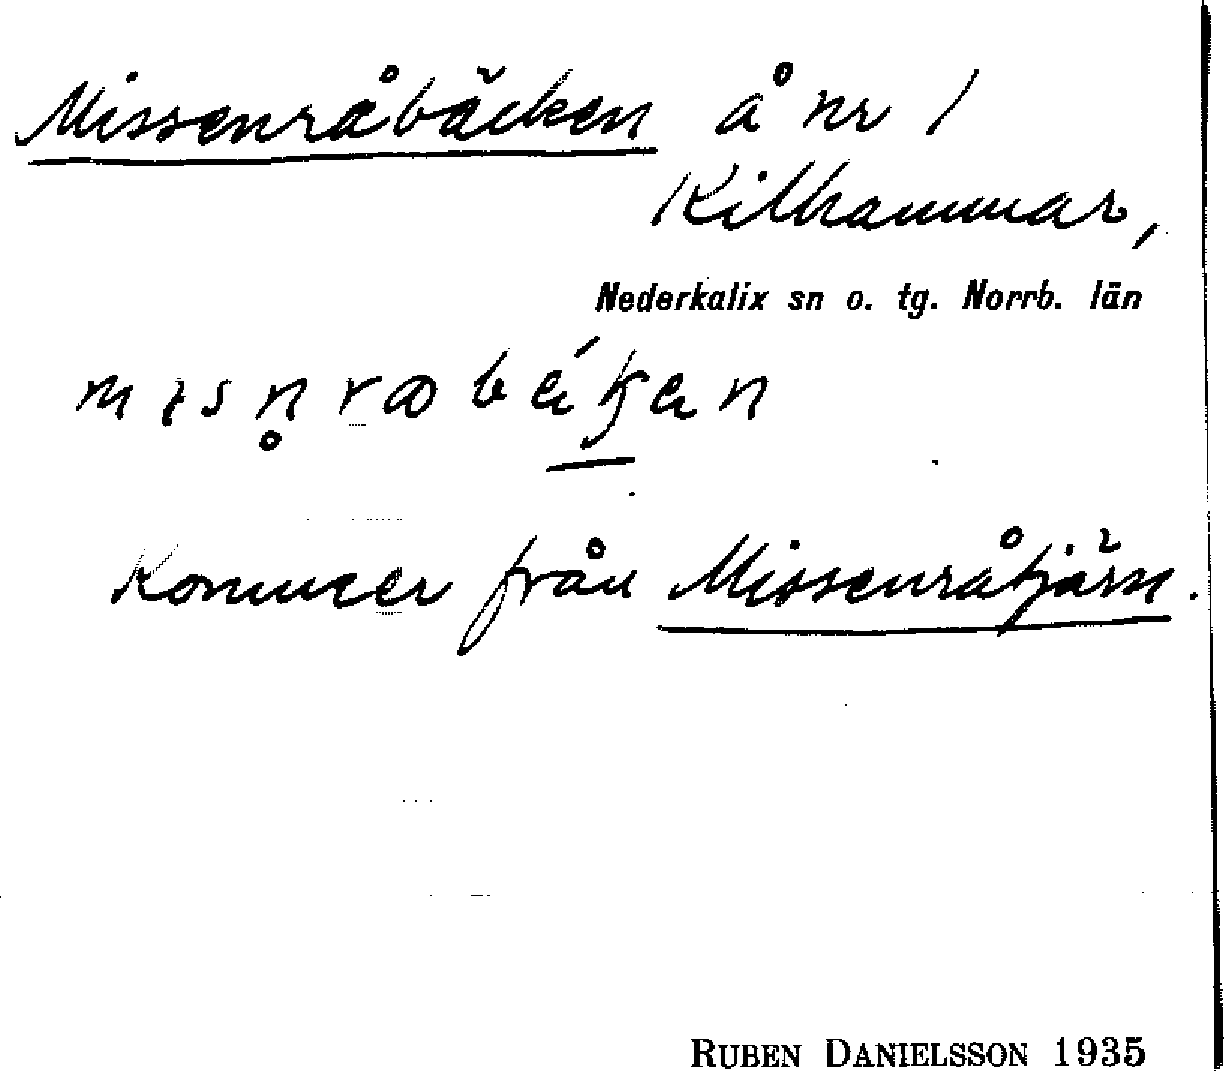 Missenråbäcken å nr 1
Kilhammar,
Nederkalix sn o. tg. Norrb. län
Kommer från Missenråtjärn.
RUBEN DANIELSSON 1935